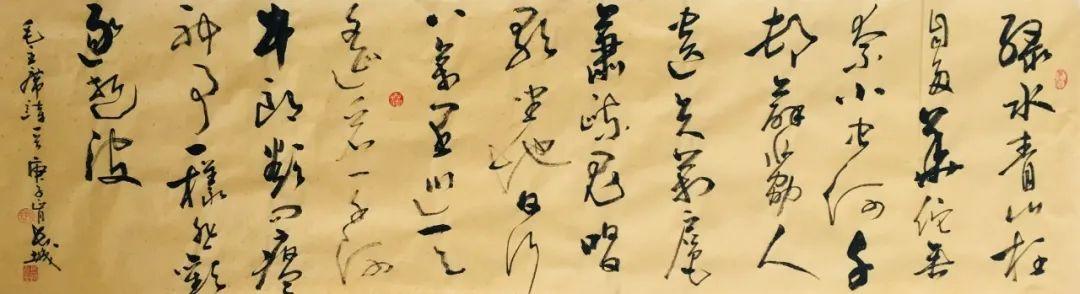 綠水青山枉
自多華佗無
奈小虫何千
村薜荔人
遺矢萬戶
蕭疏鬼唱
歌坐地日行
八萬里巡天
遥看一千河
牛郎欲問瘟
神事一樣悲歡
逐逝波
毛主席詩一首 庚子